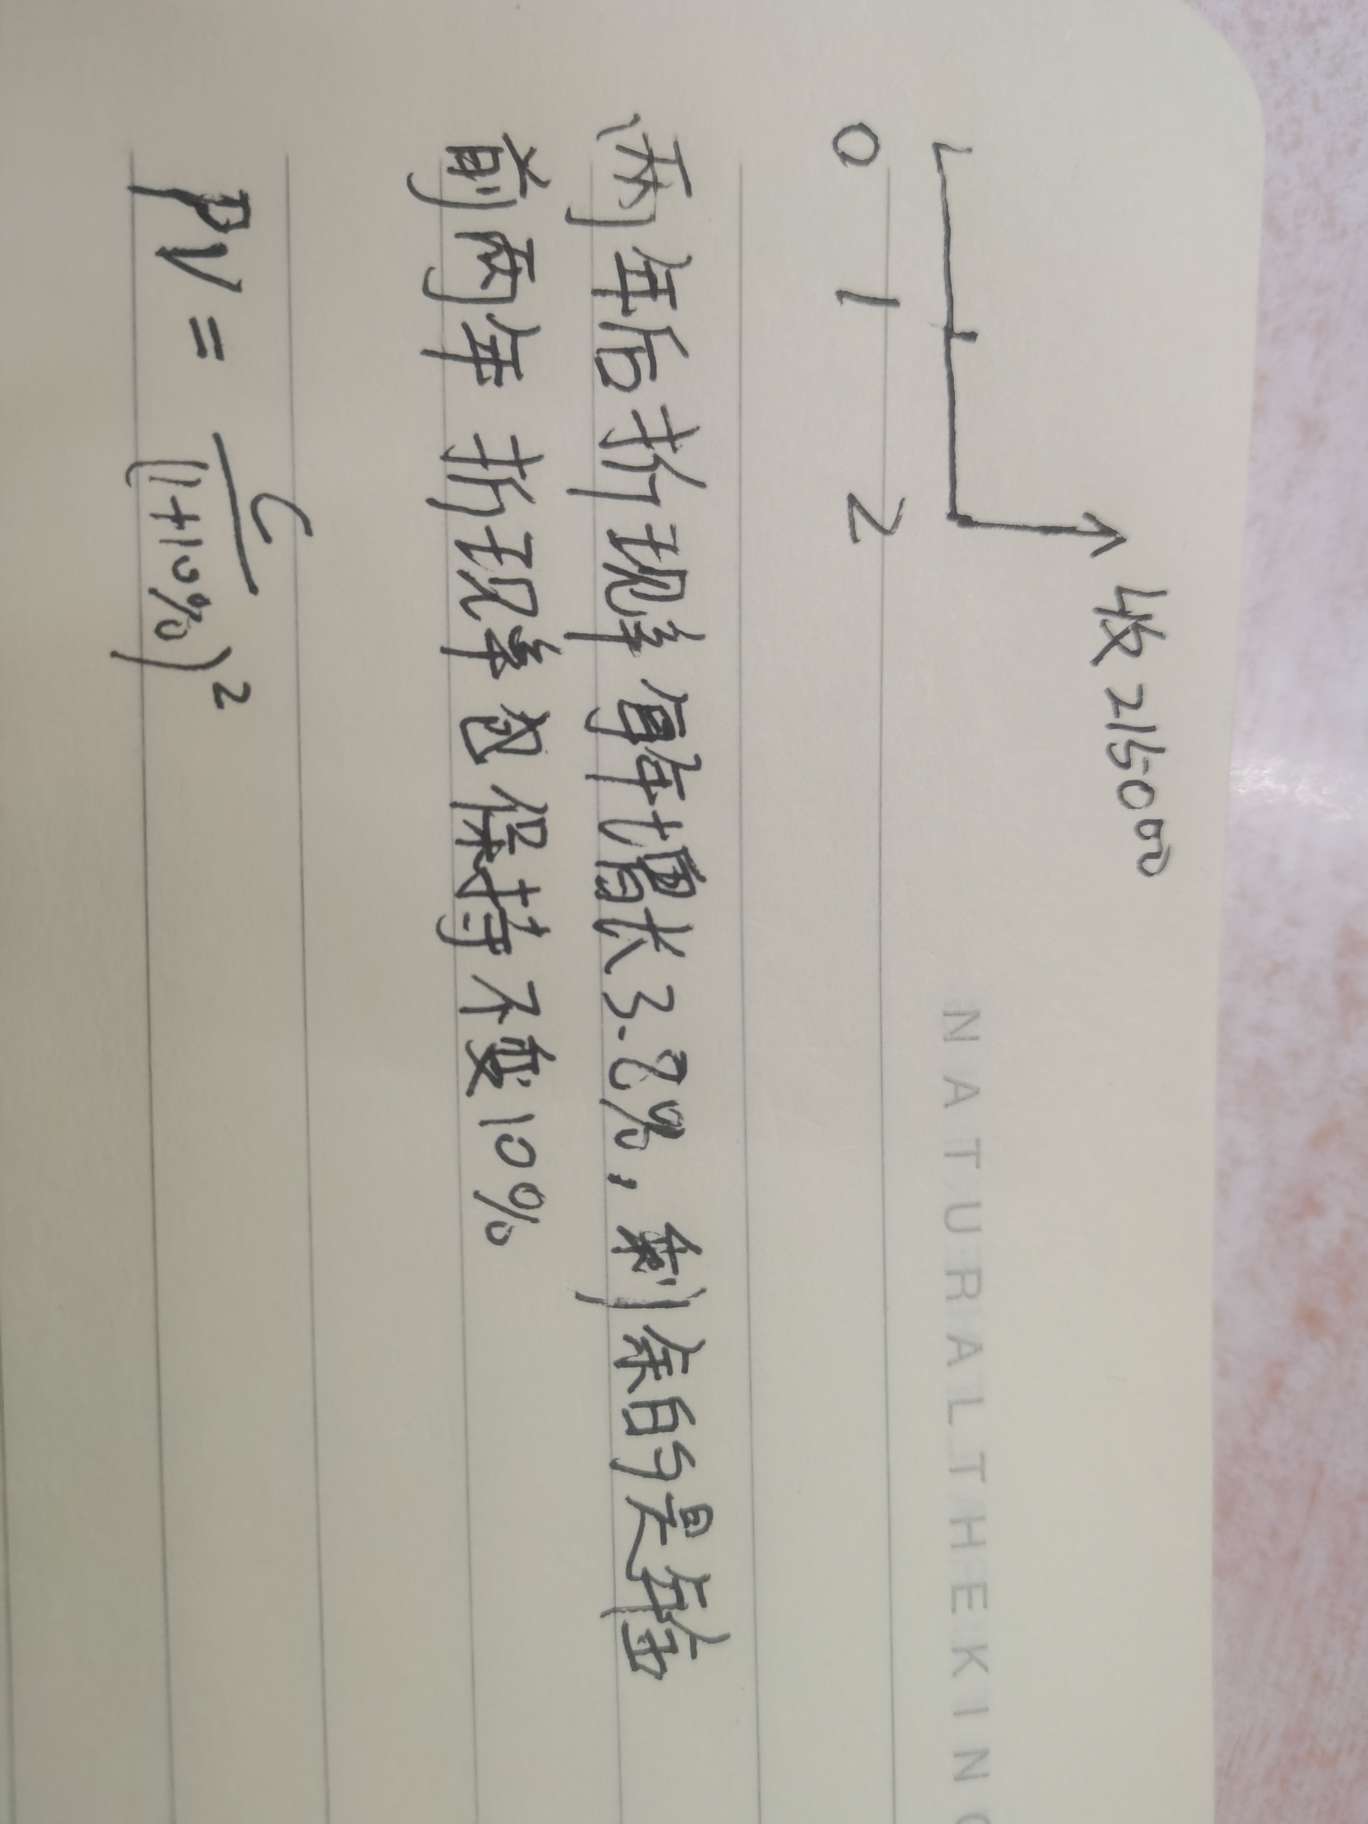 NATURIALTHEKING
收215000
0 1 2
两年后折现率每年增长3.8%，剩余的是年金
前两年折现率也保持不变10%
PV = C/(1+10%)²